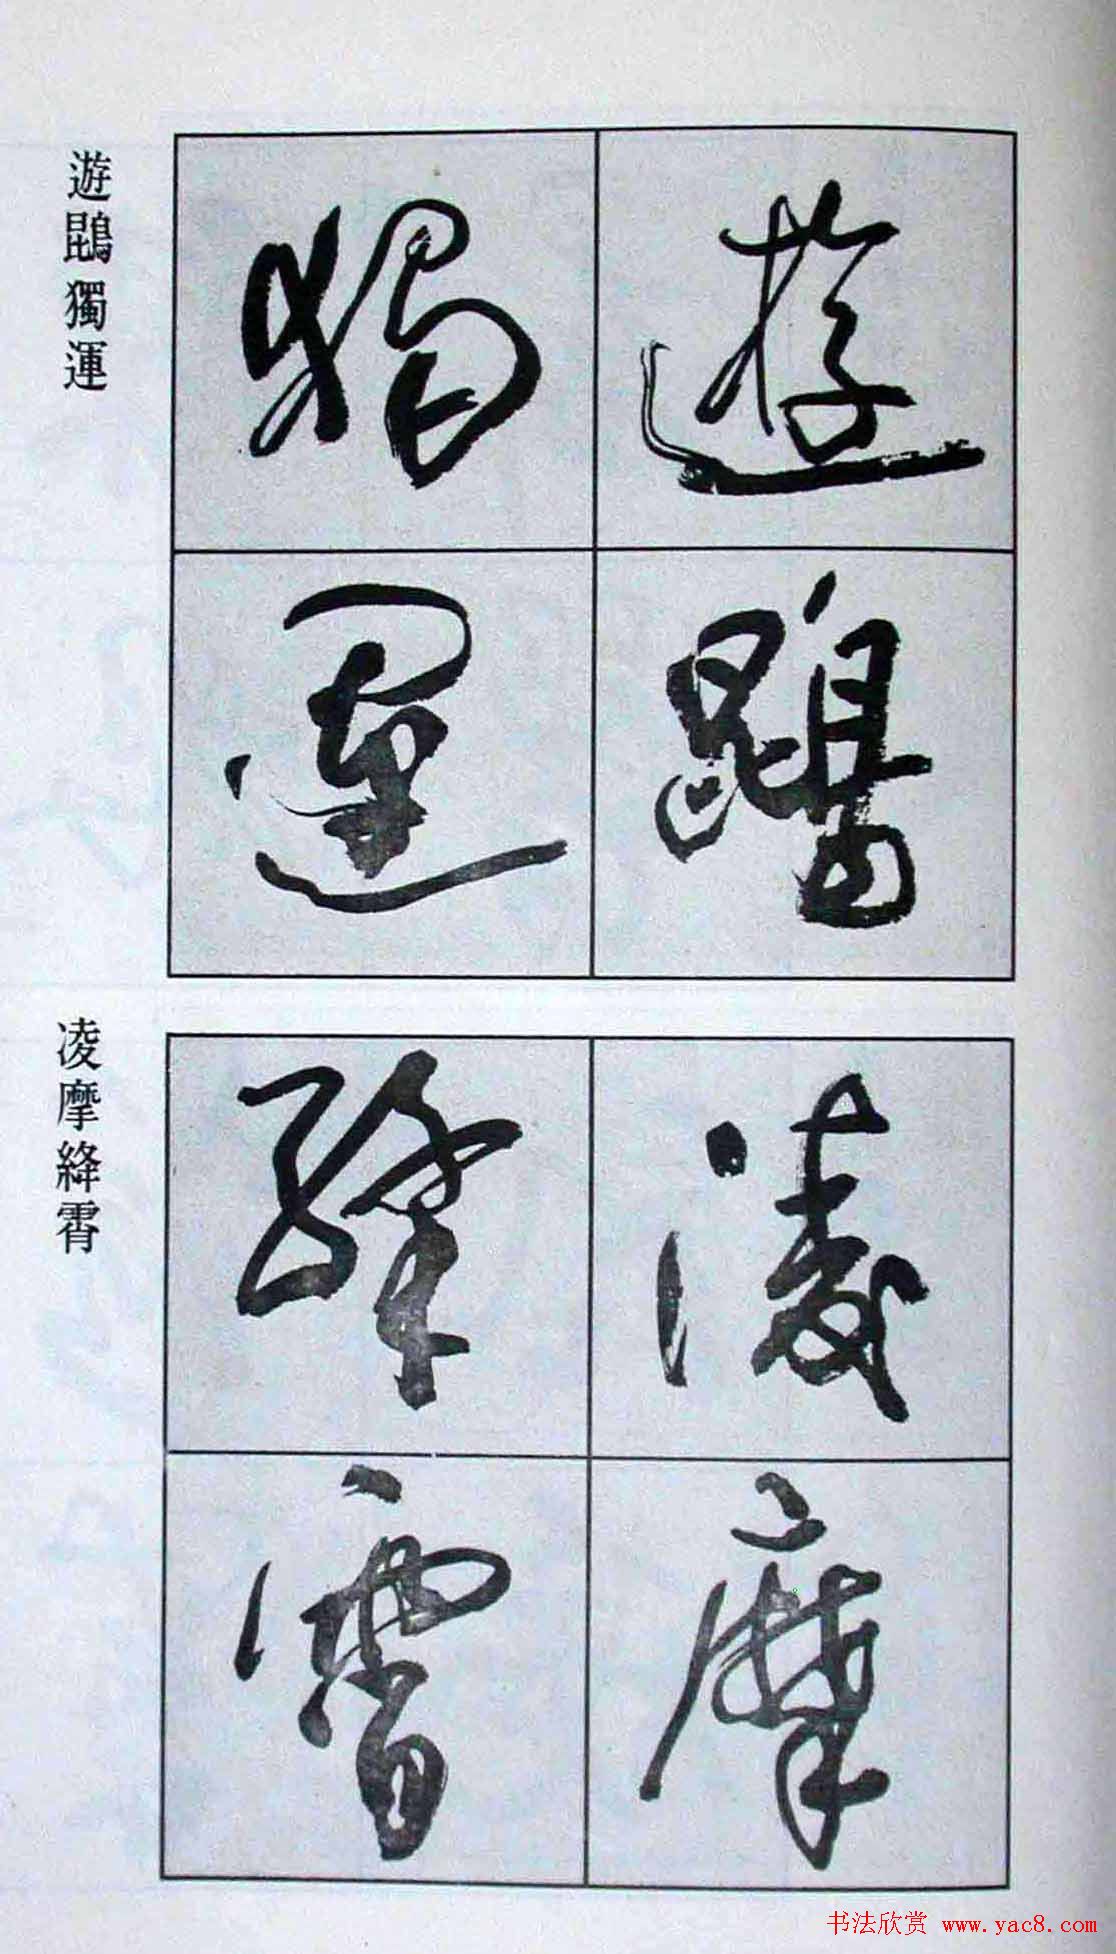 遊鵾獨運
遊鵾
獨運
凌摩絳霄
凌摩
絳霄
书法欣赏 www.yac8.com